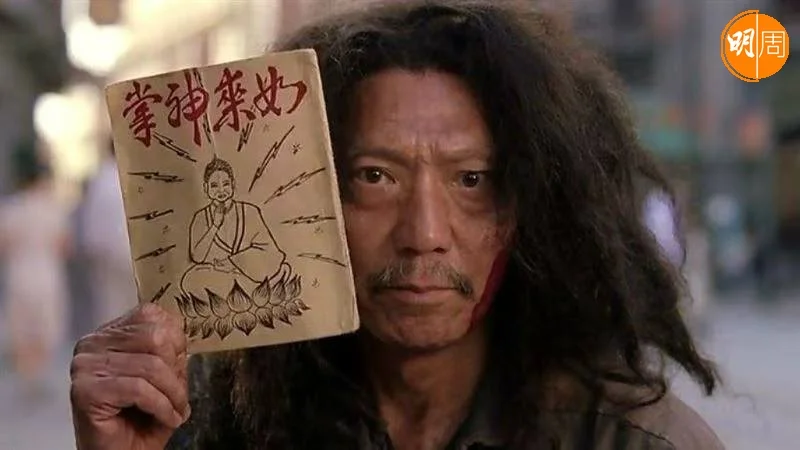 如來神掌
明周